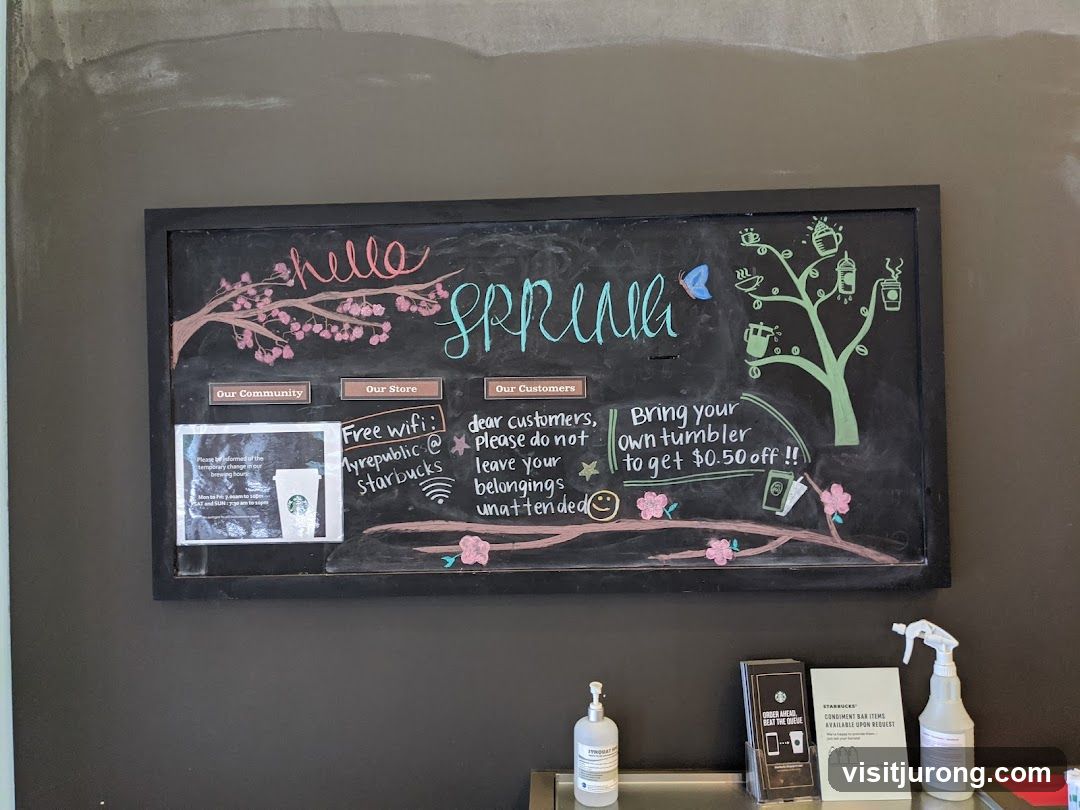 hello
SPRING
Our Community
Our Store
Our Customers
Please be informed of the
temporary change in our
brewing hours:
Mon to Fri: 7.00am to 10pm
SAT and SUN : 7.30 am to 10pm
Free wifi:
Myrepublic@
starbucks
dear customers,
please do not
leave your
belongings
unattended
Bring your
own tumbler
to get $0.50 off !!
ORDER AHEAD,
BEAT THE QUEUE
STARBUCKS®
CONDIMENT BAR ITEMS
AVAILABLE UPON REQUEST
We're happy to provide them –
just ask your barista!
visitjurong.com